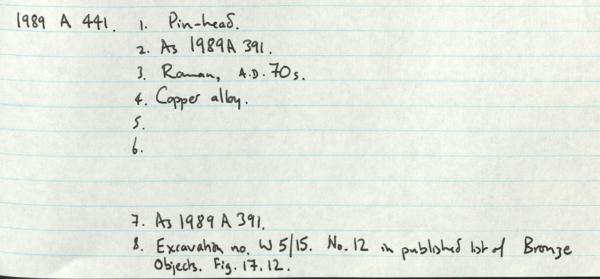 1989 A 441. 1. Pin-head.
2. As 1989 A 391.
3. Roman, A.D. 70s.
4. Copper alloy.
5.
6.
7. As 1989 A 391.
8. Excavation no. W 5/15. No. 12 in published list of Bronze
Objects. Fig. 17.12.